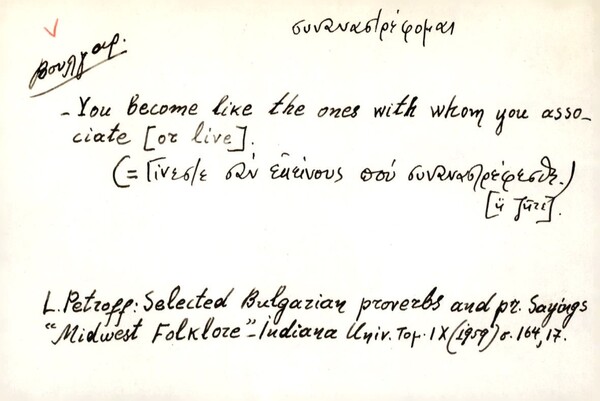 συναναστρέφομαι
Βουλγαρ.
- You become like the ones with whom you asso-
ciate [or live].
(= Γίνεστε σαν εκείνους πού συναναστρέφεσθε.)
[ή ζήτε].
L. Petroff: Selected Bulgarian proverbs and pr. Sayings
"Midwest Folklore" - Indiana Univ. Τομ. IX (1959) σ. 164, 17.